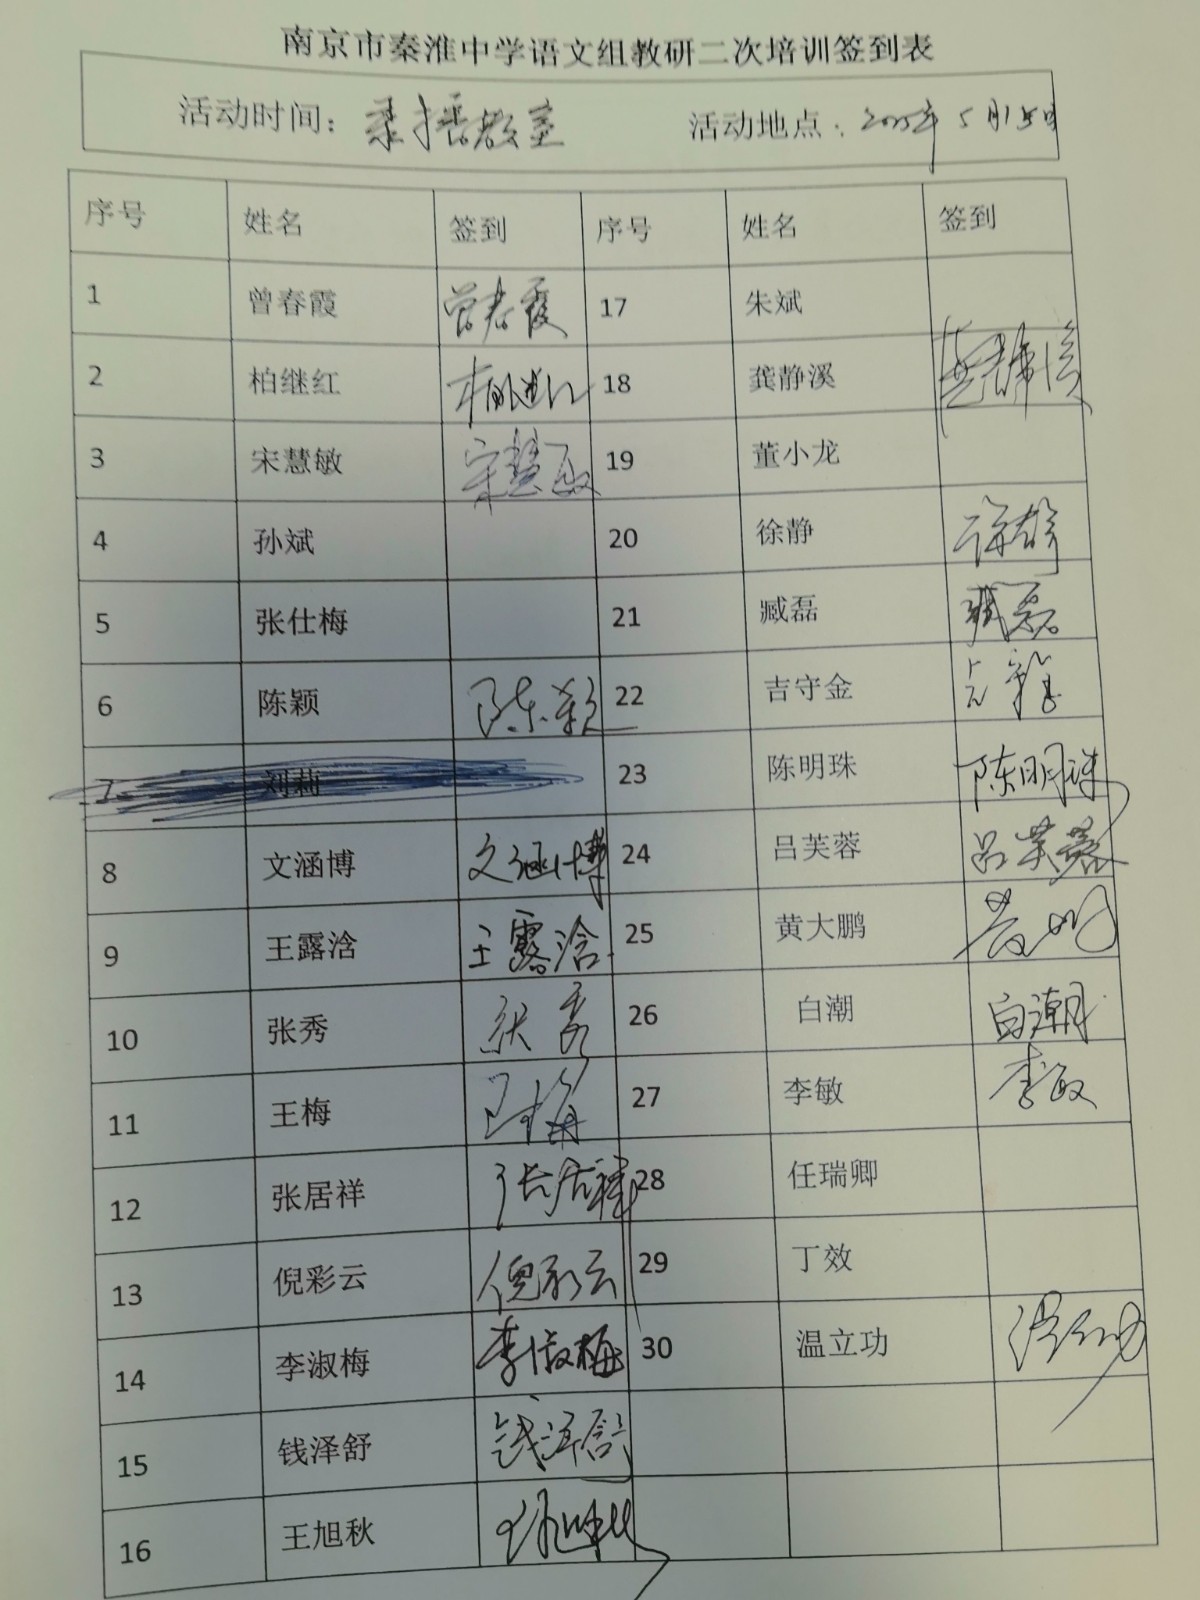 南京市秦淮中学语文组教研二次培训签到表
活动时间：录播教室 活动地点：2025年5月15日
序号 姓名 签到 序号 姓名 签到
1 曾春霞 曾春霞 17 朱斌
2 柏继红 柏继红 18 龚静溪 龚静溪
3 宋慧敏 宋慧敏 19 董小龙
4 孙斌 20 徐静 徐静
5 张仕梅 21 臧磊 臧磊
6 陈颖 陈颖 22 吉守金 吉守金
7 刘莉 23 陈明珠 陈明珠
8 文涵博 文涵博 24 吕芙蓉 吕芙蓉
9 王露浛 王露浛 25 黄大鹏
10 张秀 张秀 26 白潮 白潮
11 王梅 王梅 27 李敏 李敏
12 张居祥 张居祥 28 任瑞卿
13 倪彩云 倪彩云 29 丁效
14 李淑梅 李淑梅 30 温立功 温立功
15 钱泽舒 钱泽舒
16 王旭秋 王旭秋